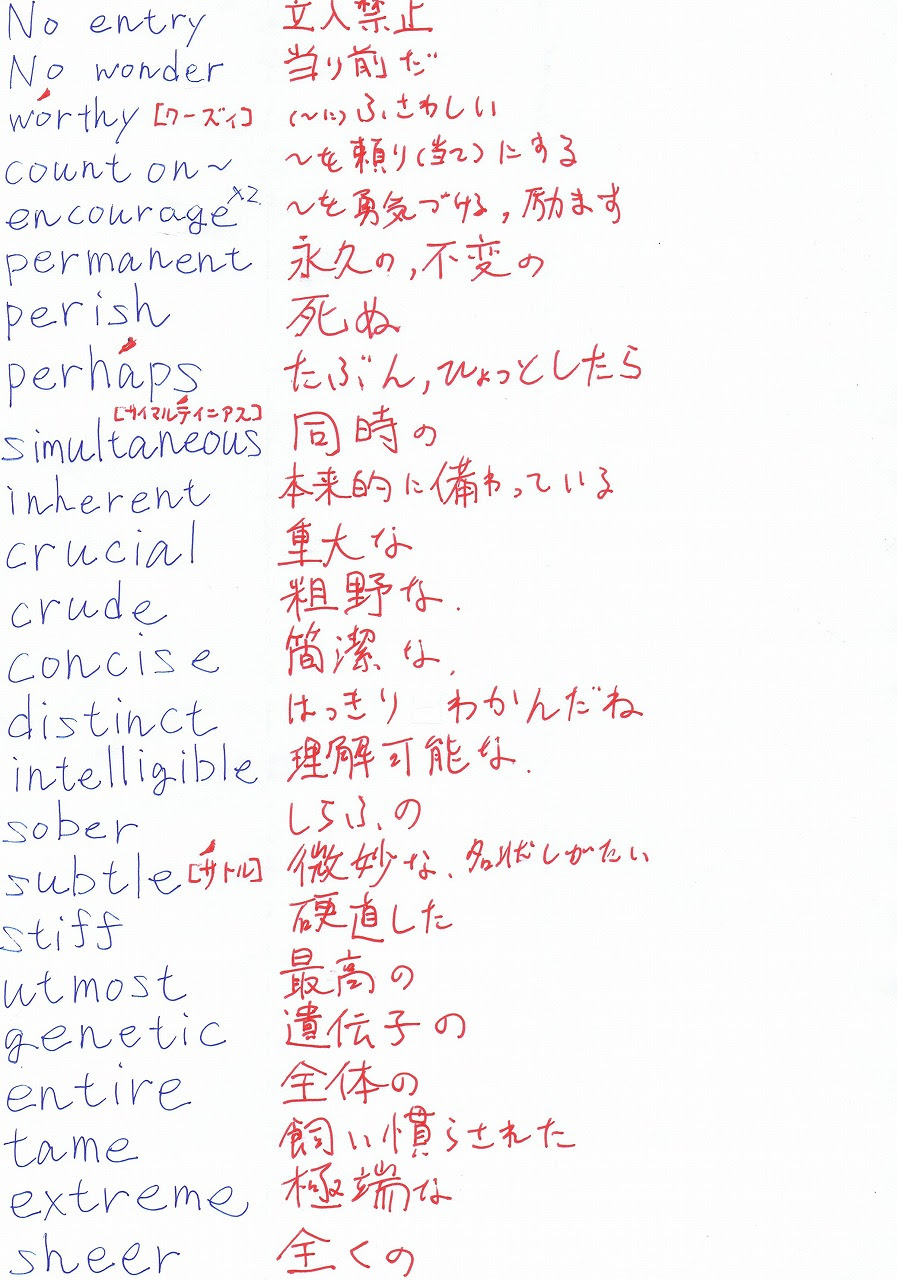 No entry 立入禁止
No wonder 当り前だ
worthy [ワーズィ] (~に)ふさわしい
count on~ ~を頼り(当て)にする
encourage×2 ~を勇気づける,励ます
permanent 永久の,不変の
perish 死ぬ
perhaps たぶん,ひょっとしたら
[サイマルテイニアス]
simultaneous 同時の
inherent 本来的に備わっている
crucial 重大な
crude 粗野な.
concise 簡潔な.
distinct はっきり わかんだね
intelligible 理解可能な.
sober しらふの
subtle [サトル] 微妙な、名状しがたい
stiff 硬直した
utmost 最高の
genetic 遺伝子の
entire 全体の
tame 飼い慣らされた
extreme 極端な
sheer 全くの